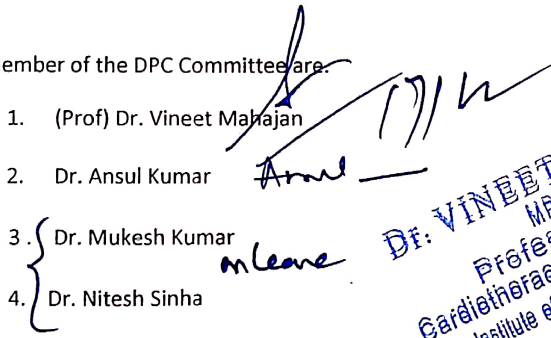 ember of the DPC Committee are.
1. (Prof) Dr. Vineet Mahajan
2. Dr. Ansul Kumar
3. Dr. Mukesh Kumar
on Leave
4. Dr. Nitesh Sinha
Dr. VINEET
Profes
Cardiothorac